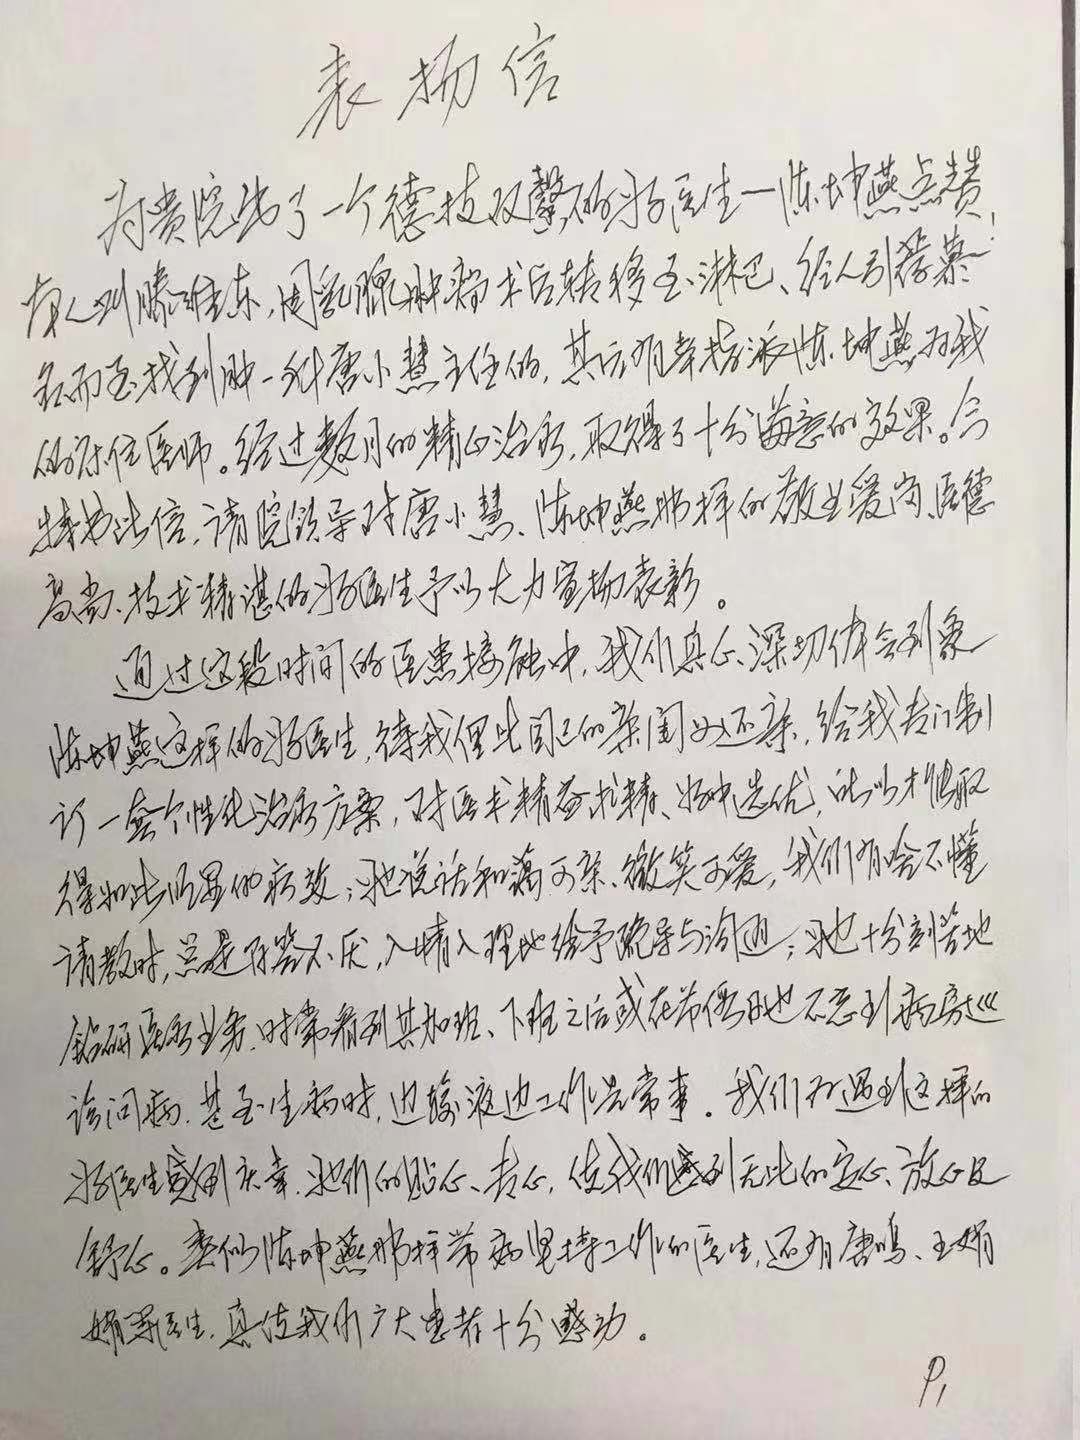 表扬信
为贵院出了一个德技双馨的好医生—陈坤燕点赞!
本人叫滕维东,因乳腺肿瘤术后转移至淋巴、经人引荐慕
名而至找到肿一科唐小慧主任的,其后有幸指派陈坤燕为我
的床位医师。经过数月的精心治疗,取得了十分满意的效果。今
特书此信,请院领导对唐小慧、陈坤燕那样的敬业爱岗、医德
高尚、技术精湛的好医生予以大力宣扬表彰。
通过这段时间的医患接触中,我们真心、深切体会到象
陈坤燕这样的好医生,待我俚比自己的亲闺女还亲,给我专门制
订一套个性化治疗方案,对医术精益求精、好中选优,所以才能取
得如此明显的疗效;她说话和蔼可亲、微笑可爱,我们有啥不懂
请教时,总是百答不厌,入情入理地给予疏导与沟通;她十分刻苦地
钻研医疗业务,时常看到其加班、下班之后或在节假日也不忘到病房巡
诊问病,甚至生病时,边输液边工作是常事。我们为遇到这样的
好医生感到庆幸,她们的贴心、专心,使我们感到无比的定心、放心及
舒心。类似陈坤燕那样带病坚持工作的医生,还有唐鸣、王娟
娟等医生,真使我们广大患者十分感动。
P1